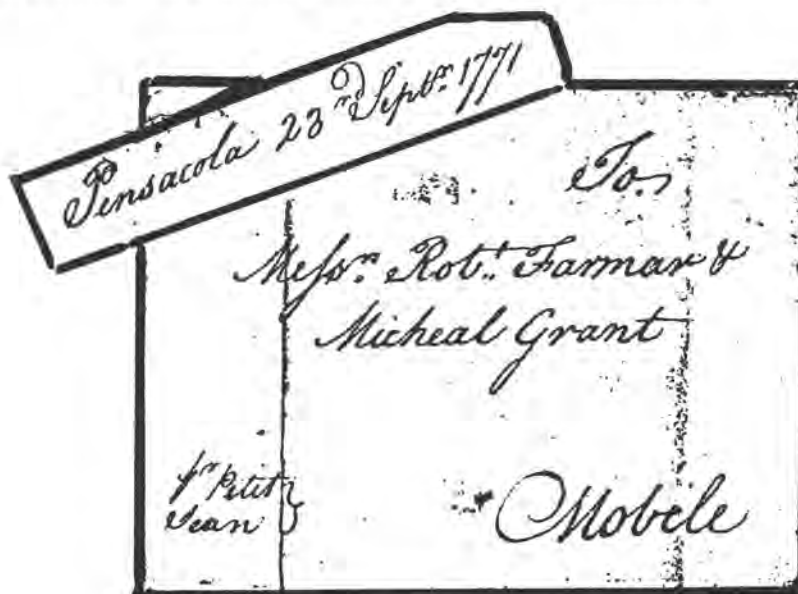 Pensacola 23rd Septr. 1771
To
Messrs. Robt. Farmar &
Micheal Grant
pr Petit
Jean
Mobele